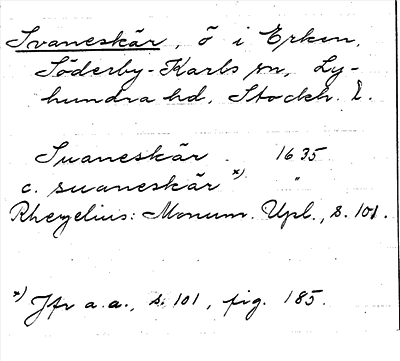 Svaneskär, ö i Erken,
Söderby-Karls sn, Ly-
hundra hd, Stockh. l.
Suaneskär . 1635
c. suaneskär x) "
Rhezelius: Monum. Upl., s. 101.
x) Jfr a.a., s. 101, fig. 185.